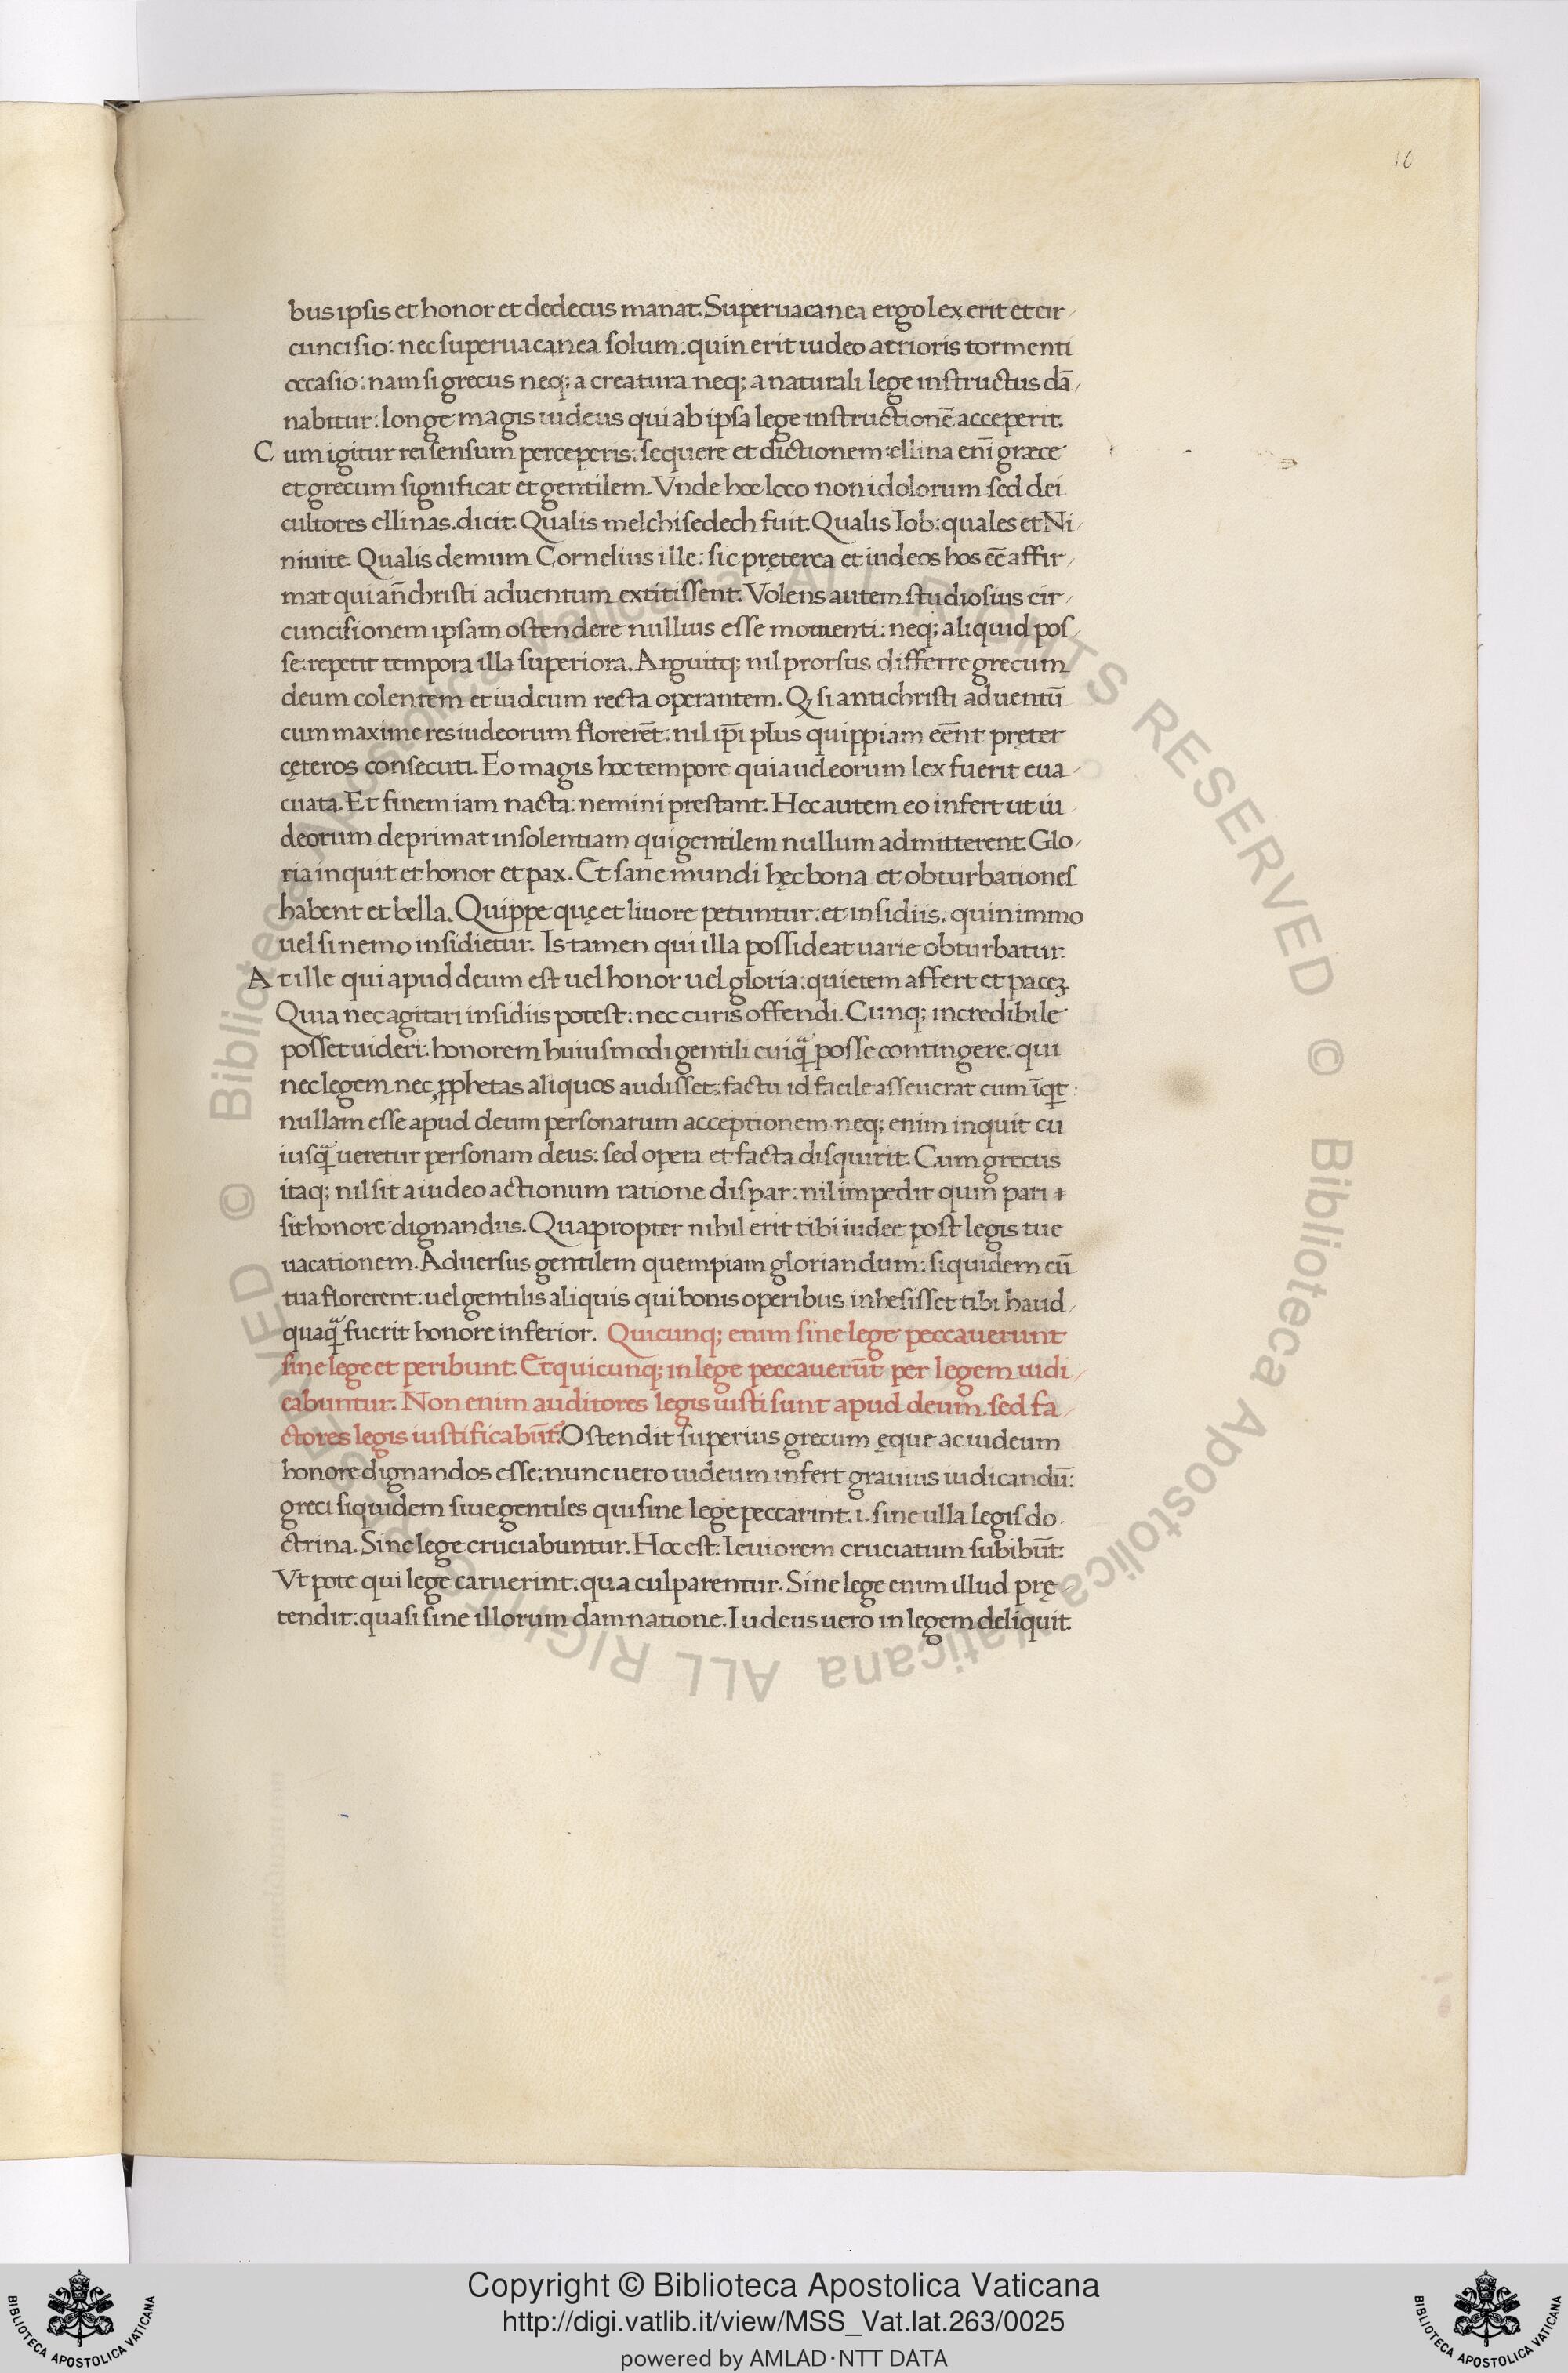 10
bus ipsis et honor et dedecus manat. Superuacanea ergo lex erit et cir/
cuncisio: nec superuacanea solum: quin erit iudeo atrioris tormenti
occasio: nam si grecus neq; a creatura neq; a naturali lege instructus dā/
nabitur: longe magis iudeus qui ab ipsa lege instructionē acceperit.
Cum igitur rei sensum perceperis: sequere et dictionem: ellina eni̅ græce
et grecum significat et gentilem. Vnde hoc loco non idolorum sed dei
cultores ellinas dicit. Qualis melchisedech fuit. Qualis Iob: quales et Ni/
niuite. Qualis demum Cornelius ille: sic pręterea et iudeos hos eē affir/
mat qui an̅ christi aduentum extitissent. Volens autem studiosius cir/
cuncisionem ipsam ostendere nullius esse momenti: neq; aliquid pos/
se: repetit tempora illa superiora. Arguitq; nil prorsus differre grecum
deum colentem et iudeum recta operantem. Q̨ si anti christi aduentū
cum maxime res iudeorum florerēt: nil ip̄i plus quippiam eēnt pręter
cęteros consecuti. Eo magis hoc tempore quia uel eorum lex fuerit eua/
cuata. Et finem iam nacta: nemini prestant. Hec autem eo infert ut iu/
deorum deprimat insolentiam qui gentilem nullum admitterent. Glo/
ria inquit et honor et pax. Et sane mundi hęc bona et obturbationes
habent et bella. Quippe quę et liuore petuntur: et insidiis. quin immo
uel si nemo insidietur. Is tamen qui illa possideat uarie obturbatur.
At ille qui apud deum est uel honor uel gloria: quietem affert et pacez.
Quia nec agitari insidiis potest: nec curis offendi. Cunq; incredibile
posset uideri: honorem huiusmodi gentili cuiq̃ posse contingere. qui
nec legem nec ꝓphetas aliquos audisset: factu id facile asseuerat cum īqt
nullam esse apud deum personarum acceptionem. neq; enim inquit cu
iusq̃ ueretur personam deus: sed opera et facta disquirit. Cum grecus
itaq; nil sit a iudeo actionum ratione dispar: nil impedit quin pari
sit honore dignandus. Quapropter nihil erit tibi iudee post legis tue
uacationem. Aduersus gentilem quempiam gloriandum: siquidem cū
tua florerent: uel gentilis aliquis qui bonis operibus inhesisset tibi haud/
quaq̃ fuerit honore inferior. Quicunq; enim sine lege peccauerunt
sine lege et peribunt. Et quicunq; in lege peccauerūt per legem iudi/
cabuntur. Non enim auditores legis iusti sunt apud deum. sed fa/
ctores legis iustificabūt͛. Ostendit superius grecum ęque ac iudeum
honore dignandos esse: nunc uero iudeum infert grauius iudicandū:
greci siquidem siue gentiles qui sine lege peccarint. i. sine ulla legis do/
ctrina. Sine lege cruciabuntur. Hoc est. Leuiorem cruciatum subibūt:
Vt pote qui lege caruerint: qua culparentur. Sine lege enim illud prę/
tendit: quasi sine illorum damnatione. Iudeus uero in legem deliquit.
© Biblioteca Apostolica Vaticana ALL RIGHTS RESERVED © Biblioteca Apostolica Vaticana ALL RIGHTS RESERVED
BIBLIOTECA APOSTOLICA VATICANA
Copyright © Biblioteca Apostolica Vaticana
http://digi.vatlib.it/view/MSS_Vat.lat.263/0025
powered by AMLAD·NTT DATA
BIBLIOTECA APOSTOLICA VATICANA